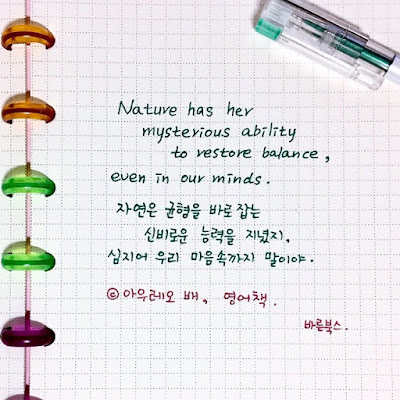 Nature has her
mysterious ability
to restore balance,
even in our minds.
자연은 균형을 바로잡는
신비로운 능력을 지녔지,
심지어 우리 마음속까지 말이야.
©아우레오 배, 영어책.
바른북스.